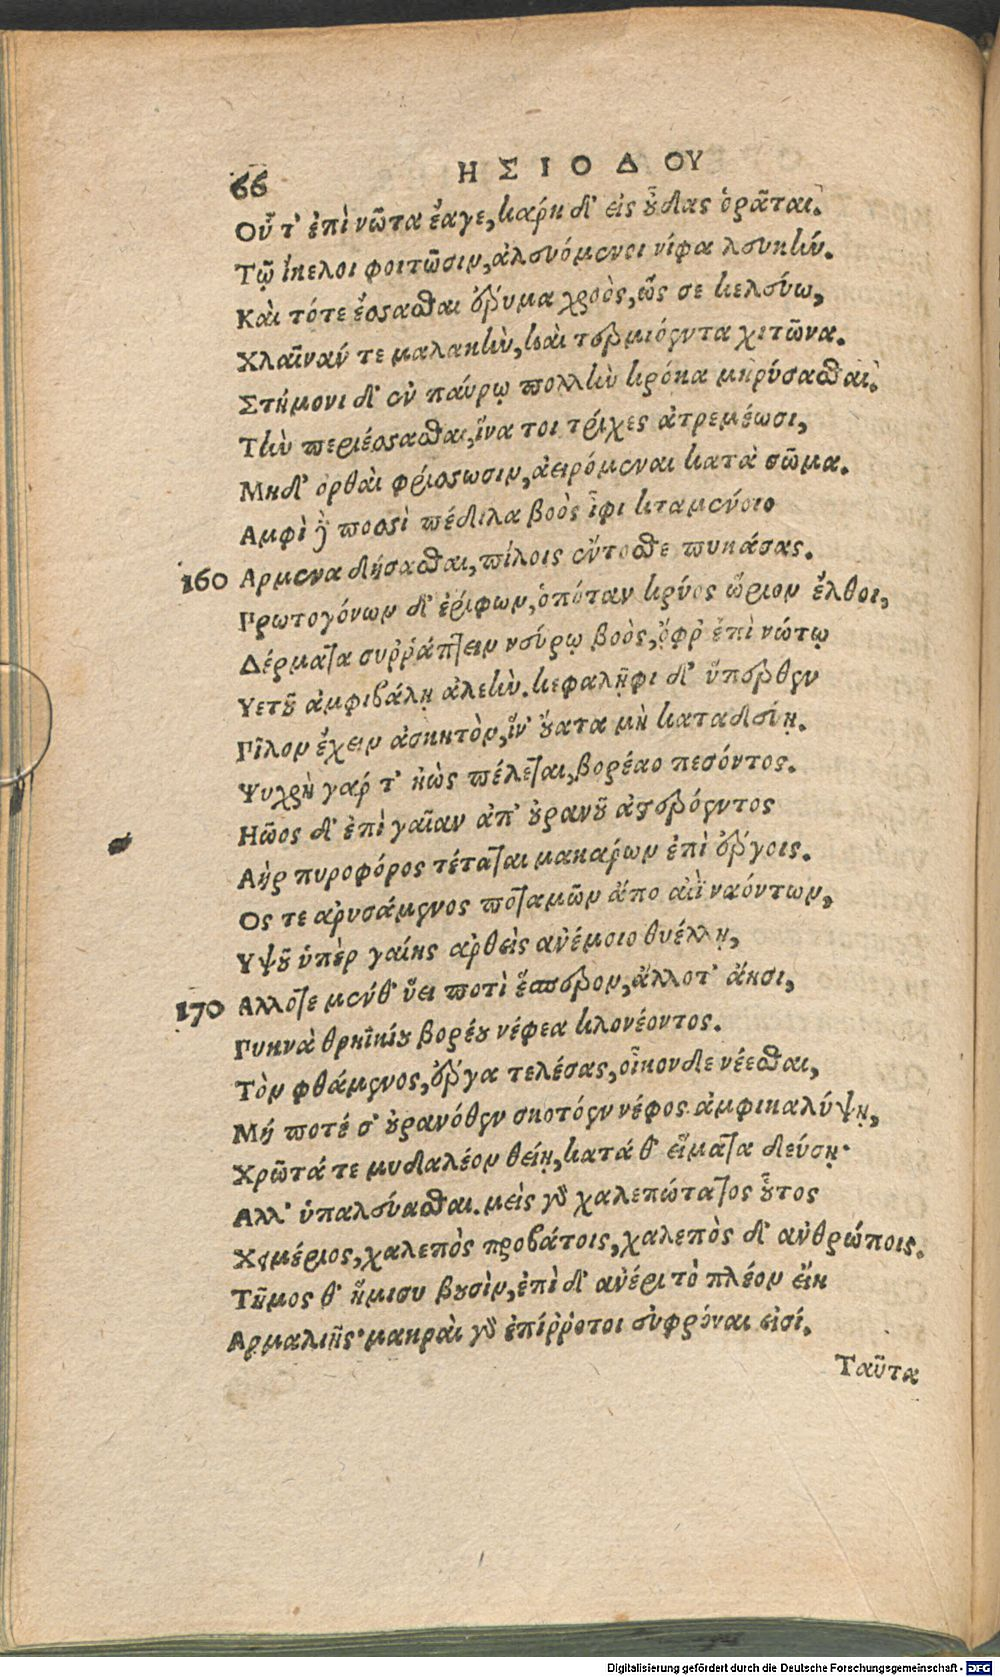 66
ΗΣΙΟΔΟΥ
Οὗ τ' ἐπὶ νῶτα ἔαγε, κάρη δ' εἰς οὖδας ὁρᾶται.
Τῷ ἴκελοι φοιτῶσιν, ἀλευόμενοι νίφα λευκήν.
Καὶ τότε ἕσσασθαι ἔρυμα χροὸς, ὥς σε κελεύω,
Χλαῖνάν τε μαλακὴν, καὶ τερμιόεντα χιτῶνα.
Στήμονι δ' ἐν παύρῳ πολλὴν κρόκα μηρύσασθαι.
Τὴν περιέσσασθαι, ἵνα τοι τρίχες ἀτρεμέωσι,
Μηδ' ὀρθαὶ φρίσσωσιν, ἀειρόμεναι κατὰ σῶμα.
Αμφὶ δὲ ποσσὶ πέδιλα βοὸς ἶφι κταμένοιο
160 Αρμενα δήσασθαι, πίλοις ἔντοσθε πυκάσας.
Πρωτογόνων δ' ἐρίφων, ὁπόταν κρύος ὥριον ἔλθοι,
Δέρματα συῤῥάπτειν νεύρῳ βοὸς, ὄφρ' ἐπὶ νώτῳ
Υετοῦ ἀμφιβάλῃ ἀλεήν. κεφαλῆφι δ' ὕπερθεν
Πῖλον ἔχειν ἀσκητὸν, ἵν' οὔατα μὴ καταδεύῃ.
Ψυχρὴ γάρ τ' ἠὼς πέλεται, βορέαο πεσόντος.
Ηῷος δ' ἐπὶ γαῖαν ἀπ' οὐρανοῦ ἀστερόεντος
Αὴρ πυροφόρος τέταται μακάρων ἐπὶ ἔργοις.
Ος τε ἀρυσάμενος ποταμῶν ἄπο αἰεὶ ναόντων,
Υψοῦ ὑπὲρ γαίης ἀρθεὶς ἀνέμοιο θυέλλῃ,
170 Αλλοτε μένθ' ὕει ποτὶ ἕσπερον, ἄλλοτ' ἄησι,
Πυκνὰ θρηϊκίου βορέου νέφεα κλονέοντος.
Τὸν φθάμενος, ἔργα τελέσας, οἶκονδε νέεσθαι,
Μή ποτέ σ' οὐρανόθεν σκοτόεν νέφος ἀμφικαλύψῃ,
Χρῶτά τε μυδαλέον θείῃ, κατά θ' εἵματα δεύσῃ·
Αλλ' ὑπαλεύασθαι. μεὶς γὰρ χαλεπώτατος οὗτος
Χειμέριος, χαλεπὸς προβάτοις, χαλεπὸς δ' ἀνθρώποις.
Τῆμος θ' ἥμισυ βουσὶν, ἐπὶ δ' ἀνέρι τὸ πλέον εἴη
Αρμαλιῆς· μακραὶ γὰρ ἐπίῤῥοτοι εὐφρόναι εἰσί.
Ταῦτα
Digitalisierung gefördert durch die Deutsche Forschungsgemeinschaft - DFG